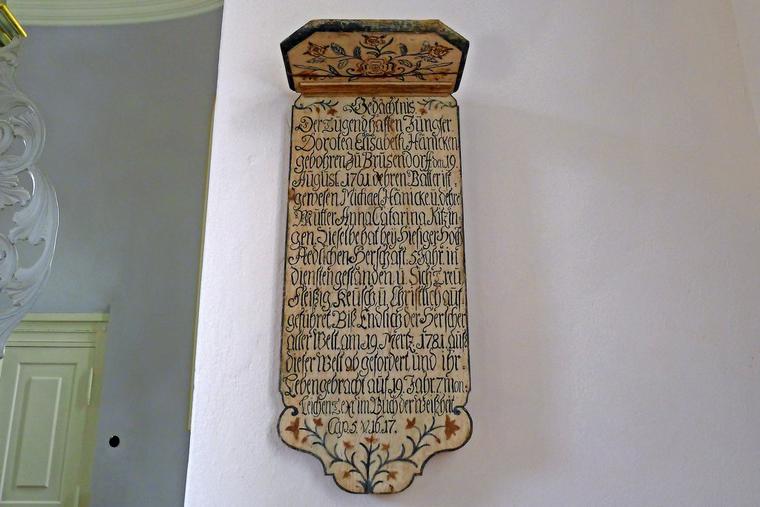 Gedächtnis
Der Tugendhafften Jungfer
Dorotea Elisabeth Hänicken
gebohren zu Brüsendorff den 19
August. 1761. dehren Vatter ist
gewesen Michael Hänicke u dehre
Mutter Anna Catarina Kitzin
gen, Dieselbe hat beÿ Hiesiger Hoch
Aedlichen Herschafft. 5 Jahr in
diensten gestanden u. Sich Treu
Fleißig Keusch u Christlich auf
geführet. Biß Endlich der Herscher
aller Welt am 19. Mertz. 1781. auß
dieser Welt ab gefordert und ihr
Leben gebracht auf 19. Jahr 7 mon.
Leichen Text im Buch der Weißheit
Cap. 5. V. 16. 17.